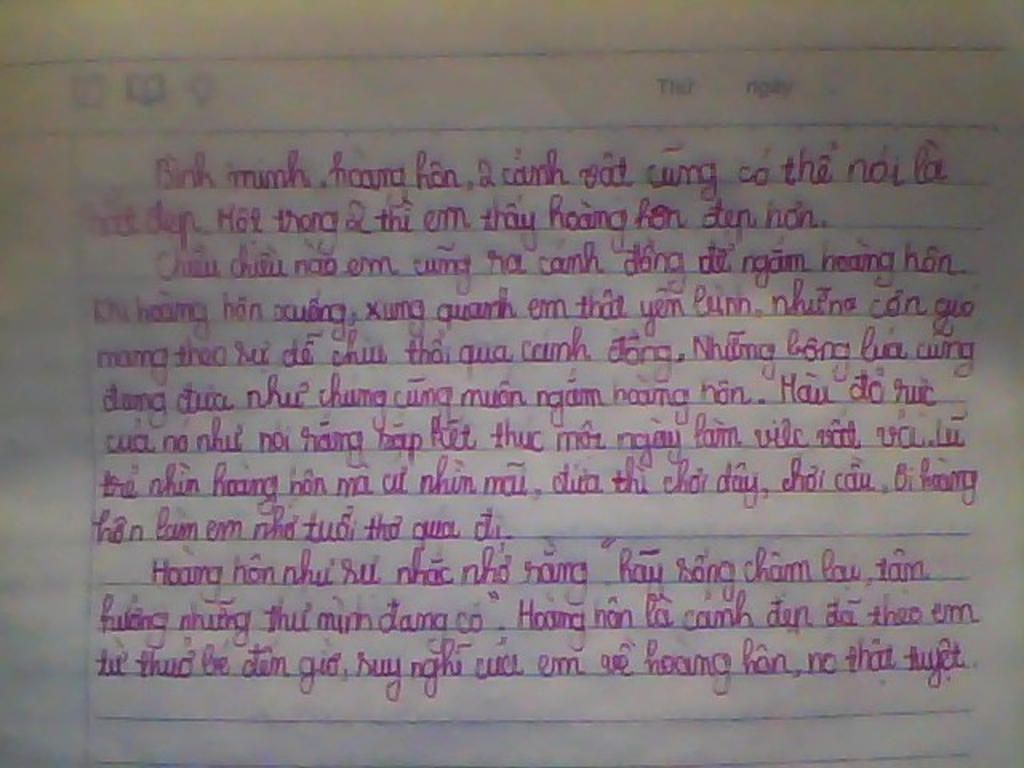 Thứ ngày
Bình minh, hoàng hôn, 2 cảnh vật cũng có thể nói là
rất đẹp. Một trong 2 thì em thấy hoàng hôn đẹp hơn.
Chiều chiều nào em cũng ra cánh đồng để ngắm hoàng hôn.
Khi hoàng hôn xuống, xung quanh em thật yên bình, những cơn gió
mang theo sự dễ chịu thổi qua cánh đồng. Những bông lúa cũng
đung đưa như chúng cũng muốn ngắm hoàng hôn. Màu đỏ rực
của nó như nói rằng sắp kết thúc một ngày làm việc vất vả. Lũ
trẻ nhìn hoàng hôn mà cứ nhìn mãi, đứa thì chơi dây, chơi cầu, bi hoàng
hôn làm em nhớ tuổi thơ qua đi.
Hoàng hôn như sự nhắc nhở rằng "hãy sống chậm lại, tận
hưởng những thứ mình đang có". Hoàng hôn là cảnh đẹp đã theo em
từ thuở bé đến giờ, suy nghĩ của em về hoàng hôn, nó thật tuyệt.